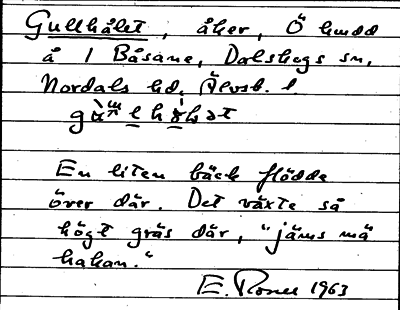 Gullhålet, åker, Ö
å 1 Båsane, Dalskogs sn,
Nordals hd, Älvsb. l
En liten bäck flödde
över där. Det växte så
högt gräs där, "jäms mä
hakan."
E. Rosell 1963